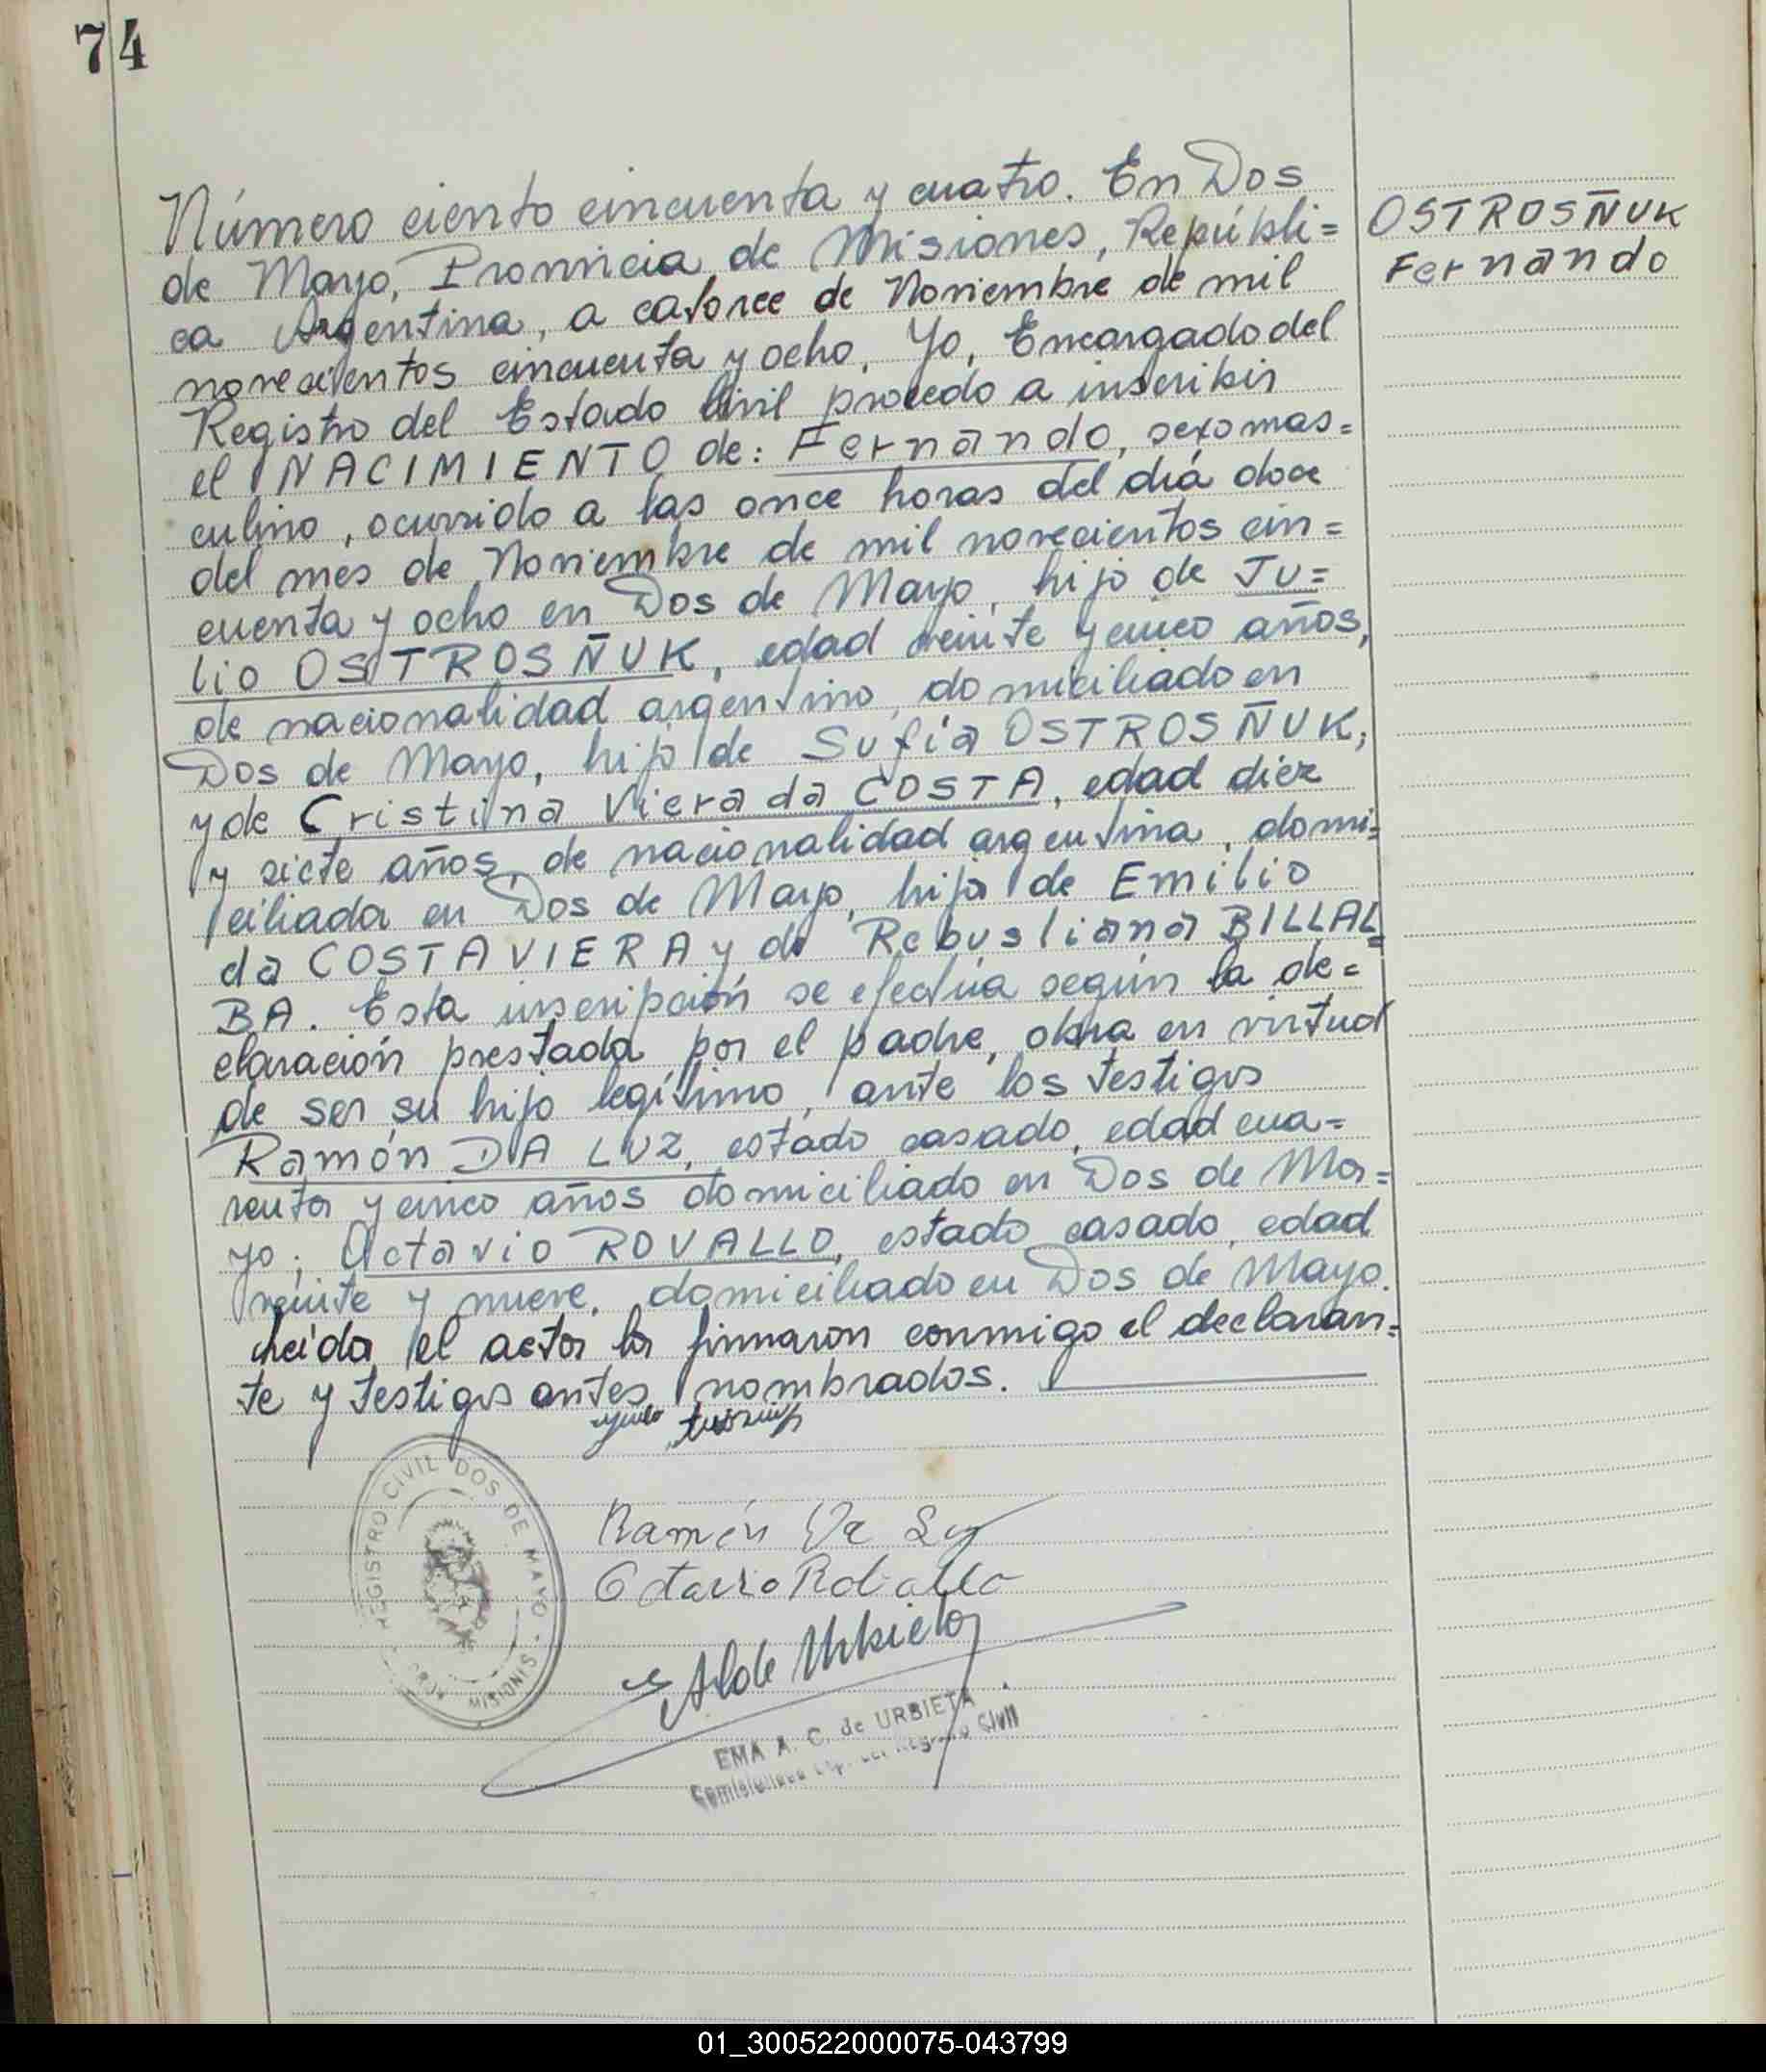 74
Número ciento cincuenta y cuatro. En Dos
de Mayo, Provincia de Misiones, Repúbli=
ca Argentina, a catorce de Noviembre de mil
novecientos cincuenta y ocho, Yo, Encargado del
Registro del Estado Civil procedo a inscribir
el NACIMIENTO de: Fernando, sexo mas=
culino, ocurrido a las once horas del día doce
del mes de Noviembre de mil novecientos cin=
cuenta y ocho en Dos de Mayo, hijo de Ju=
lio OSTROSÑUK, edad veinte y cinco años,
de nacionalidad argentino, domiciliado en
Dos de Mayo, hijo de Sufia OSTROSÑUK;
y de Cristina Viera da COSTA, edad diez
y siete años, de nacionalidad argentina, domi=
ciliada en Dos de Mayo, hija de Emilio
da COSTA VIERA y de Rebusliana BILLAL=
BA. Esta inscripción se efectúa según la de=
claración prestada por el padre, obra en virtud
de ser su hijo legítimo, ante los testigos
Ramón DA LUZ, estado casado, edad cua=
renta y cinco años domiciliado en Dos de Ma=
yo; Octavio ROVALLO, estado casado, edad
veinte y nueve, domiciliado en Dos de Mayo.
Leída el acta la firmaron conmigo el declaran=
te y testigos antes nombrados.
Ramón Da Luz
Octavio Roballo
A de Urbieta
EMA A. C. de URBIETA
Registro Civil
REGISTRO CIVIL DOS DE MAYO - MISIONES
OSTROSÑUK
Fernando
01_300522000075-043799